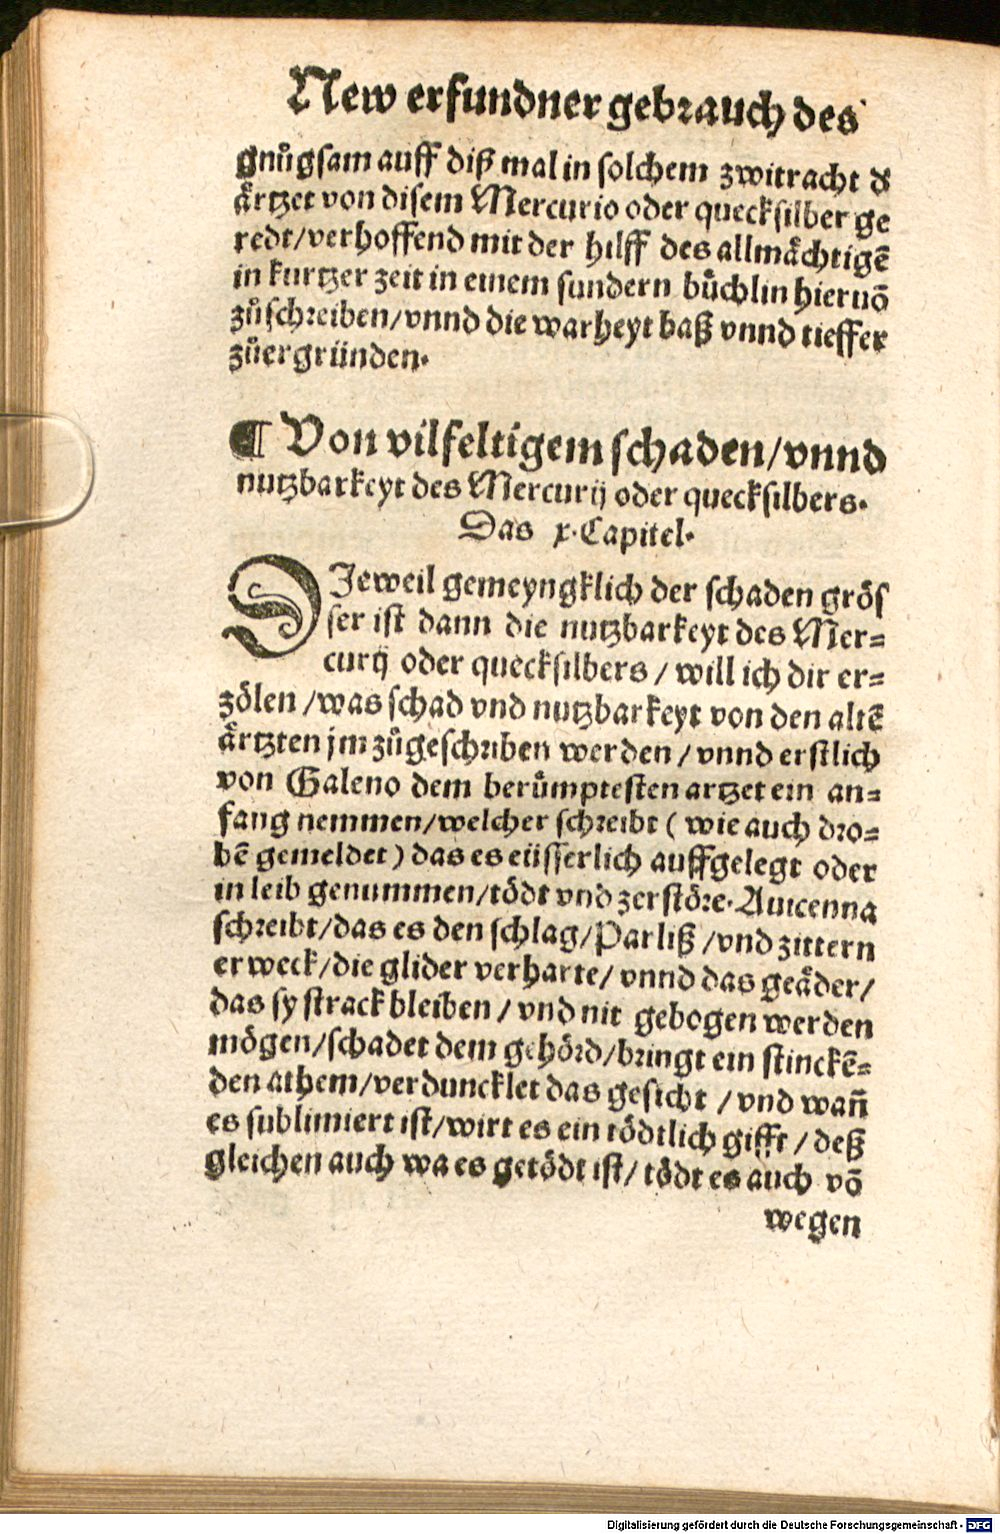 New erfundner gebrauch des
gnůgsam auff diß mal in solchem zwitracht ď
aͤrtzet von disem Mercurio oder quecksilber ge
redt/verhoffend mit der hilff des allmaͤchtigē
in kurtzer zeit in einem sundern buͤchlin hieruō
zůschreiben/vnnd die warheyt baß vnnd tieffer
zůergründen.
¶ Von vilfeltigem schaden/vnnd
nutzbarkeyt des Mercurij oder quecksilbers.
Das x. Capitel.
DJeweil gemeyngklich der schaden groͤs
ser ist dann die nutzbarkeyt des Mer=
curij oder quecksilbers / will ich dir er=
zoͤlen /was schad vnd nutzbarkeyt von den altē
aͤrtzten jm zůgeschriben werden / vnnd erstlich
von Galeno dem beruͤmptesten artzet ein an=
fang nemmen/welcher schreibt ( wie auch dro=
bē gemeldet ) das es eüsserlich auffgelegt oder
in leib genummen/toͤdt vnd zerstoͤre. Auicenna
schreibt/das es den schlag/Parliß /vnd zittern
erweck/die glider verharte/ vnnd das geaͤder/
das sy strack bleiben / vnd nit gebogen werden
moͤgen/schadet dem gehoͤrd/bringt ein stinckē=
den athem/verduncklet das gesicht / vnd wañ
es sublimiert ist/wirt es ein toͤdtlich gifft / deß
gleichen auch wa es getoͤdt ist/ toͤdt es auch vō
wegen
Digitalisierung gefördert durch die Deutsche Forschungsgemeinschaft - DFG